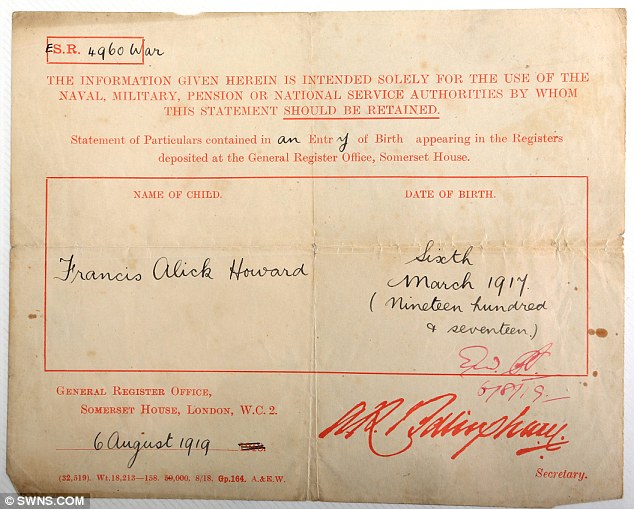 E S.R. 4960 War
THE INFORMATION GIVEN HEREIN IS INTENDED SOLELY FOR THE USE OF THE
NAVAL, MILITARY, PENSION OR NATIONAL SERVICE AUTHORITIES BY WHOM
THIS STATEMENT SHOULD BE RETAINED.
Statement of Particulars contained in an Entry of Birth appearing in the Registers
deposited at the General Register Office, Somerset House.
NAME OF CHILD.
DATE OF BIRTH.
Francis Alick Howard
Sixth
March 1917.
(Nineteen hundred
& seventeen.)
5/8/19
GENERAL REGISTER OFFICE,
SOMERSET HOUSE, LONDON, W.C. 2.
6 August 1919
(32,519). Wt.18,213—158. 50,000. 8/18. Gp.164. A.& E.W.
Secretary.
© SWNS.COM